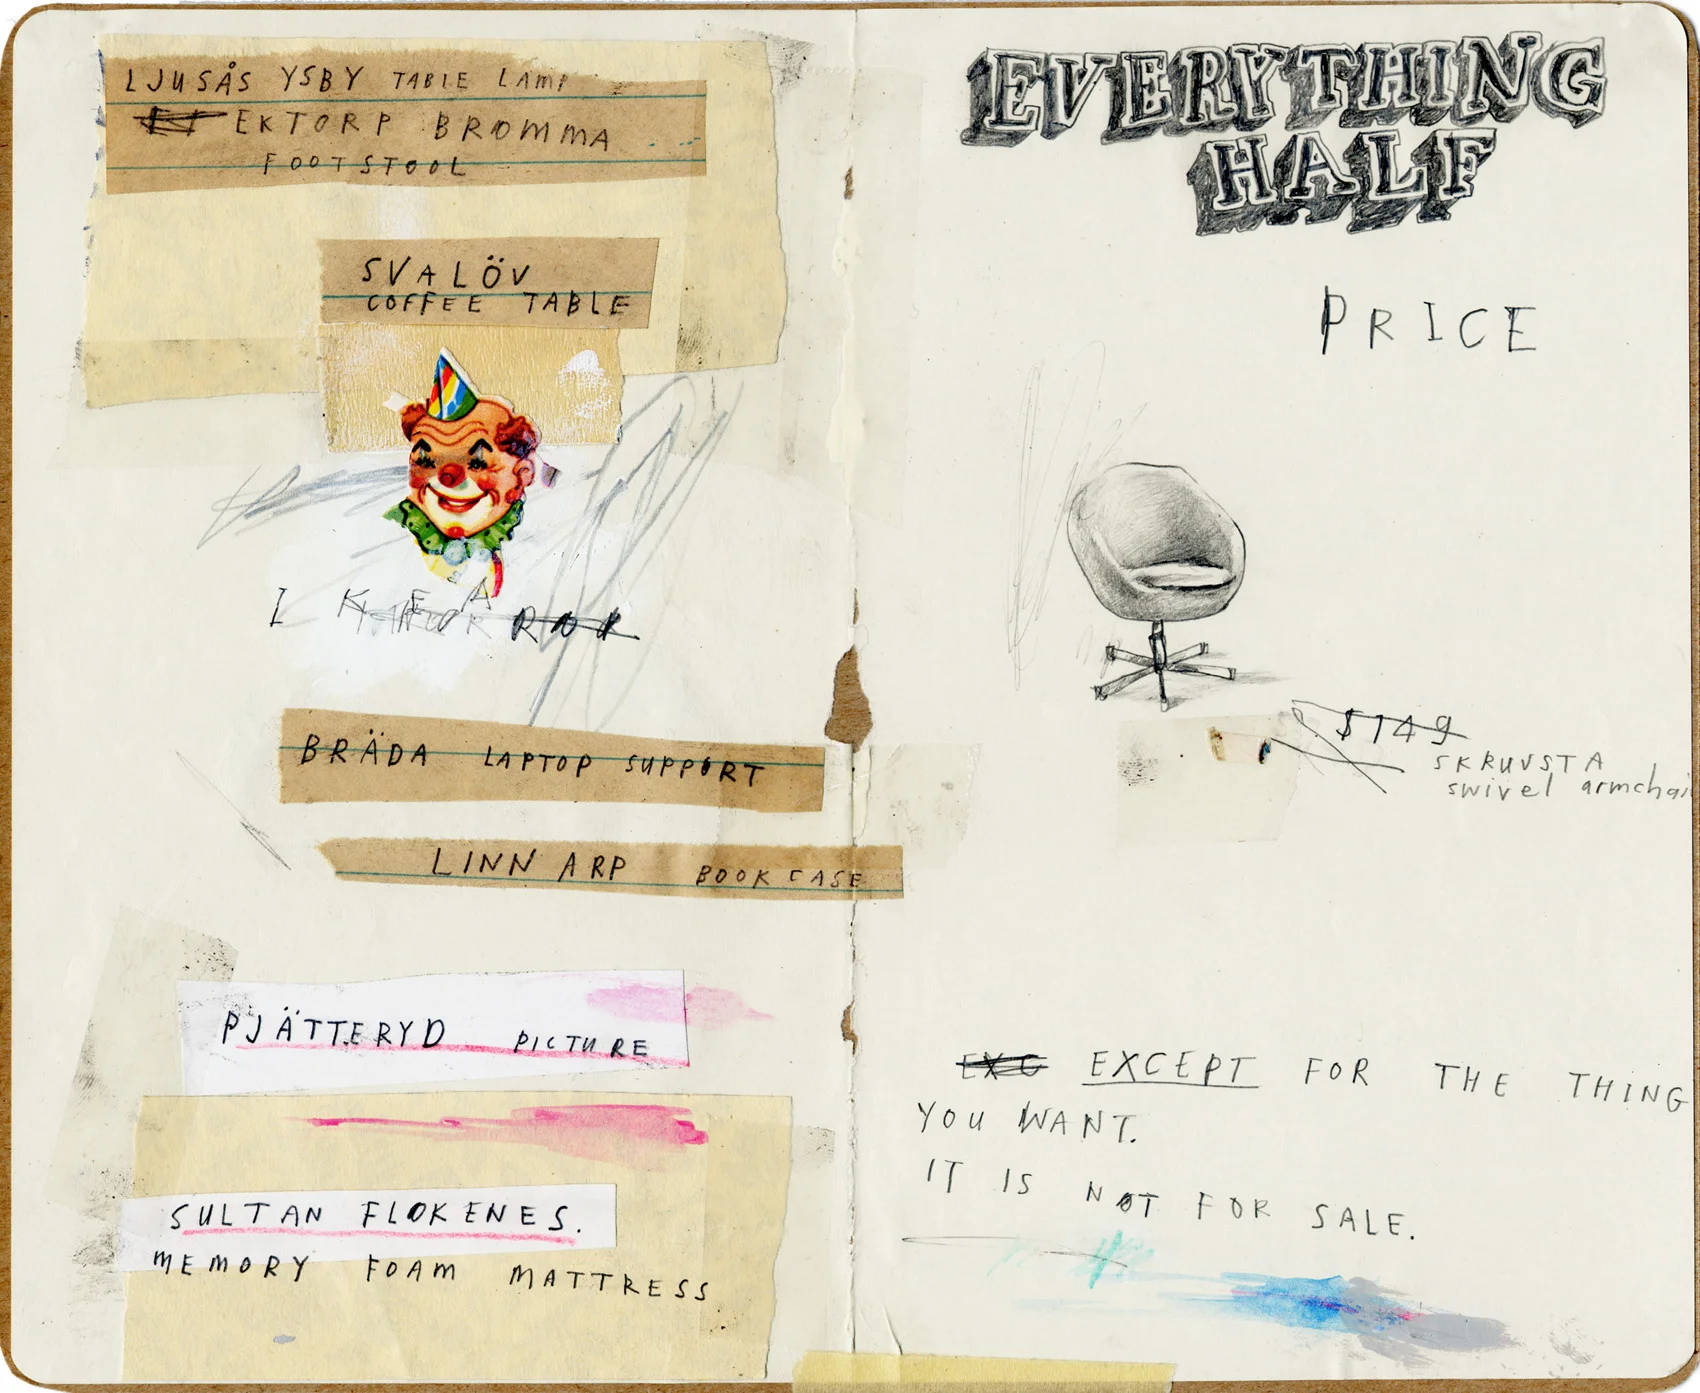 LJUSÅS YSBY TABLE LAMP
EKTORP BROMMA
FOOTSTOOL
SVALÖV
COFFEE TABLE
I KEA
BRÄDA LAPTOP SUPPORT
LINN ARP BOOKCASE
PJÄTTERYD PICTURE
SULTAN FLOKENES.
MEMORY FOAM MATTRESS
EVERYTHING
HALF
PRICE
$149
SKRUVSTA
swivel armchair
EXC EXCEPT FOR THE THING
YOU WANT.
IT IS NOT FOR SALE.